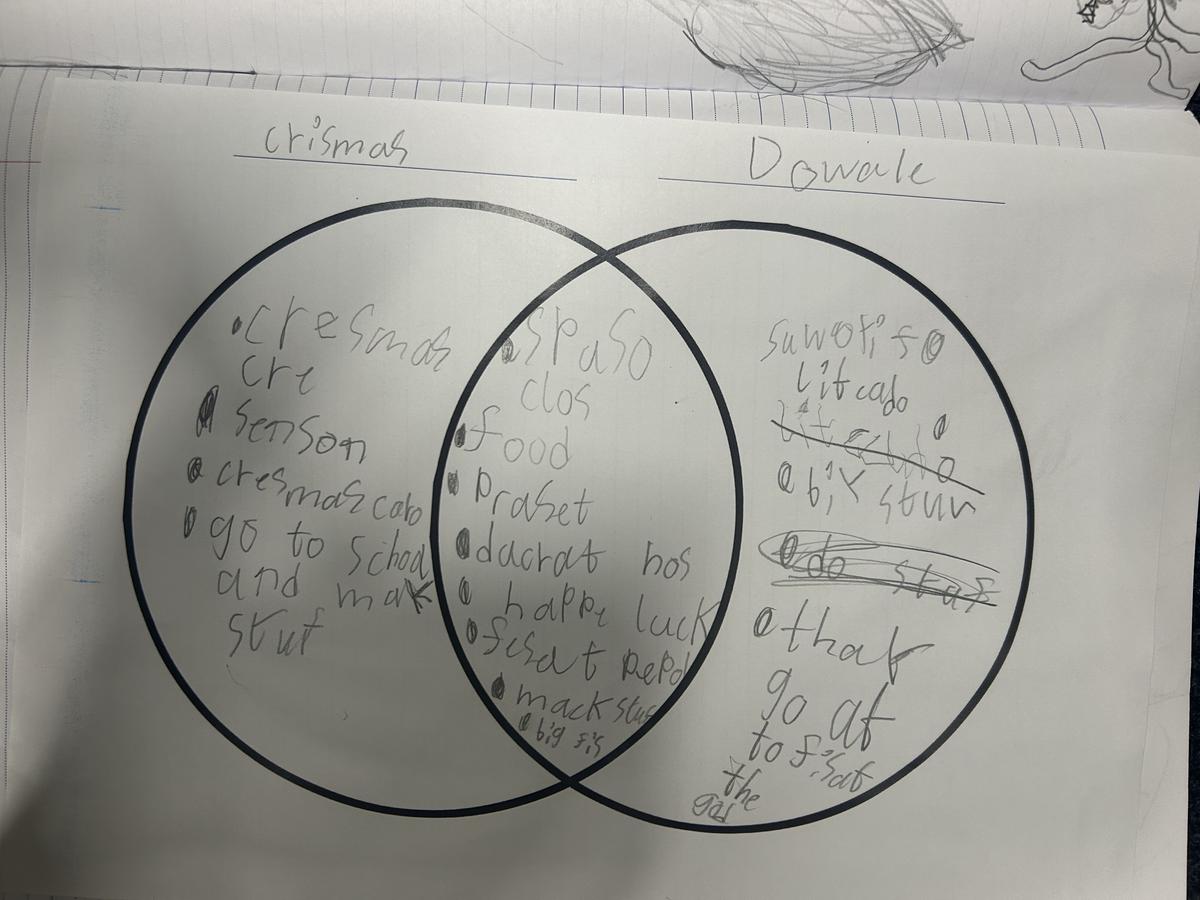 crismas
Dowale
• cresmas
cre
• senson
• cresmas cabo
• go to school
and mak
stuf
• spaso
clos
• food
• praset
• dacrat hos
• happe luck
• fesat pepol
• mack stuf
• big fis
suwoti fo
litcado
• bix stun
• thak
go at
to fisat
the
god